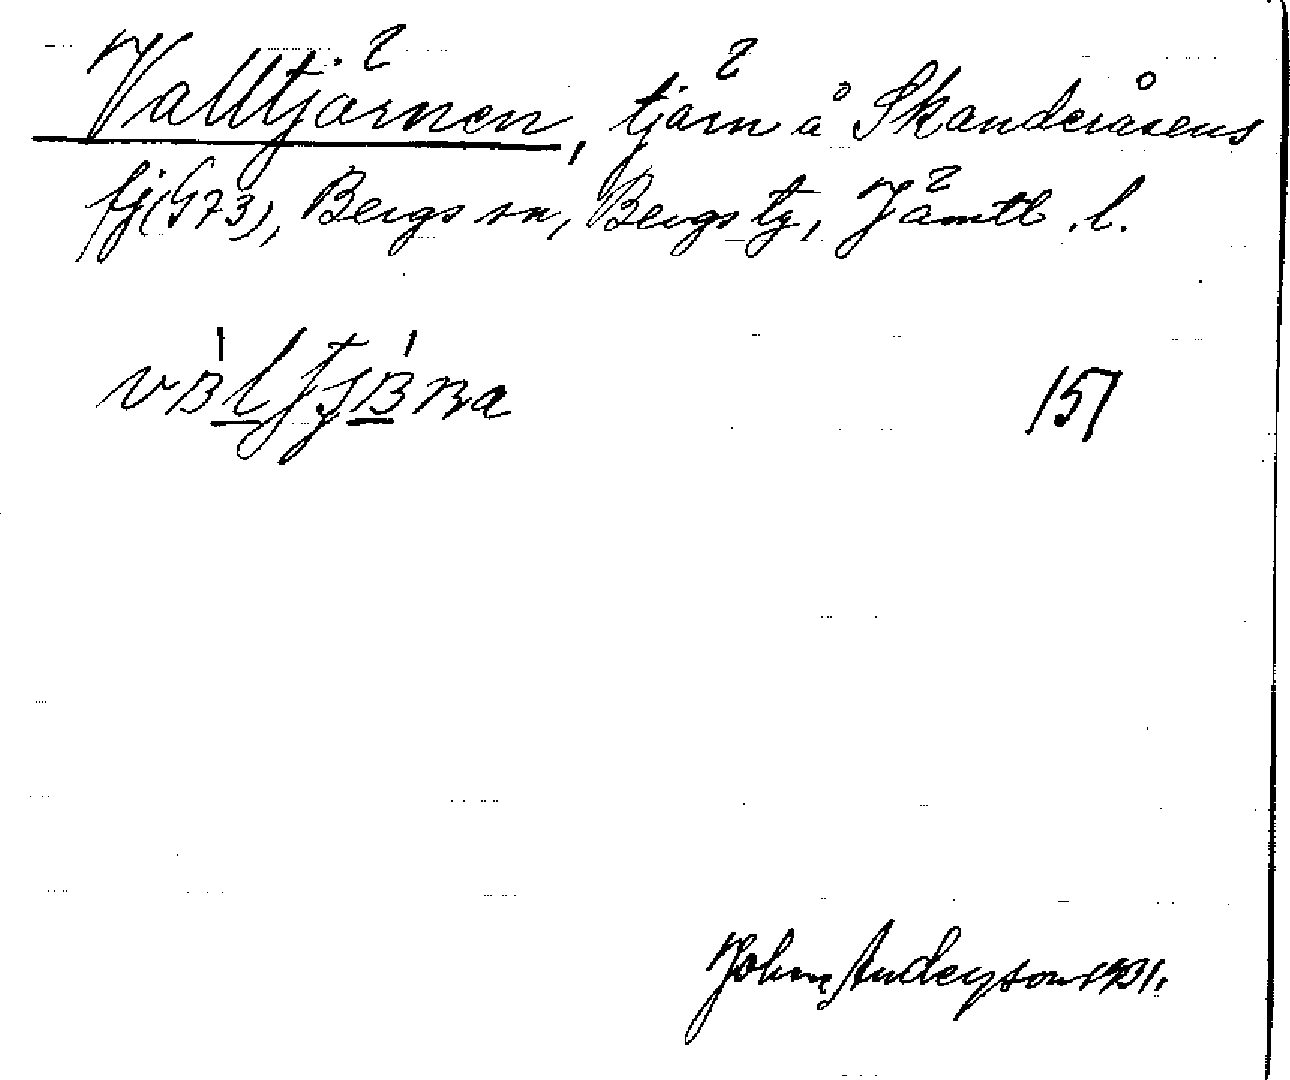 Valltjärnen, tjärn å Skanderåsens
fj (G73), Bergs sn, Bergs tg, Jämtl. l.
157
John Andersson 1931.